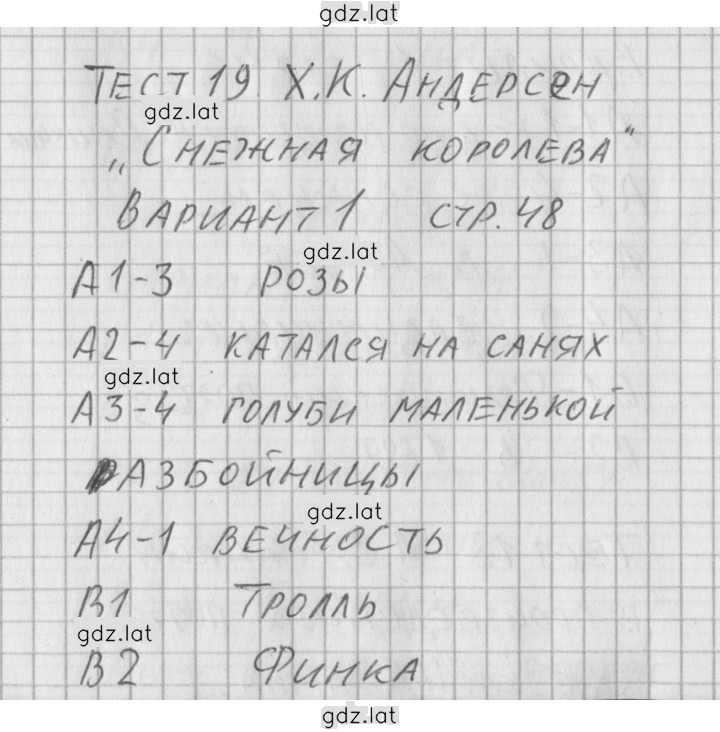 gdz.lat
Тест 19. Х.К. Андерсен
gdz.lat
„Снежная королева"
Вариант 1 стр. 48
gdz.lat
А1-3 розы
А2-4 катался на санях
gdz.lat
А3-4 голуби маленькой
разбойницы
gdz.lat
А4-1 вечность
В1 Тролль
gdz.lat
В2 Финка
gdz.lat